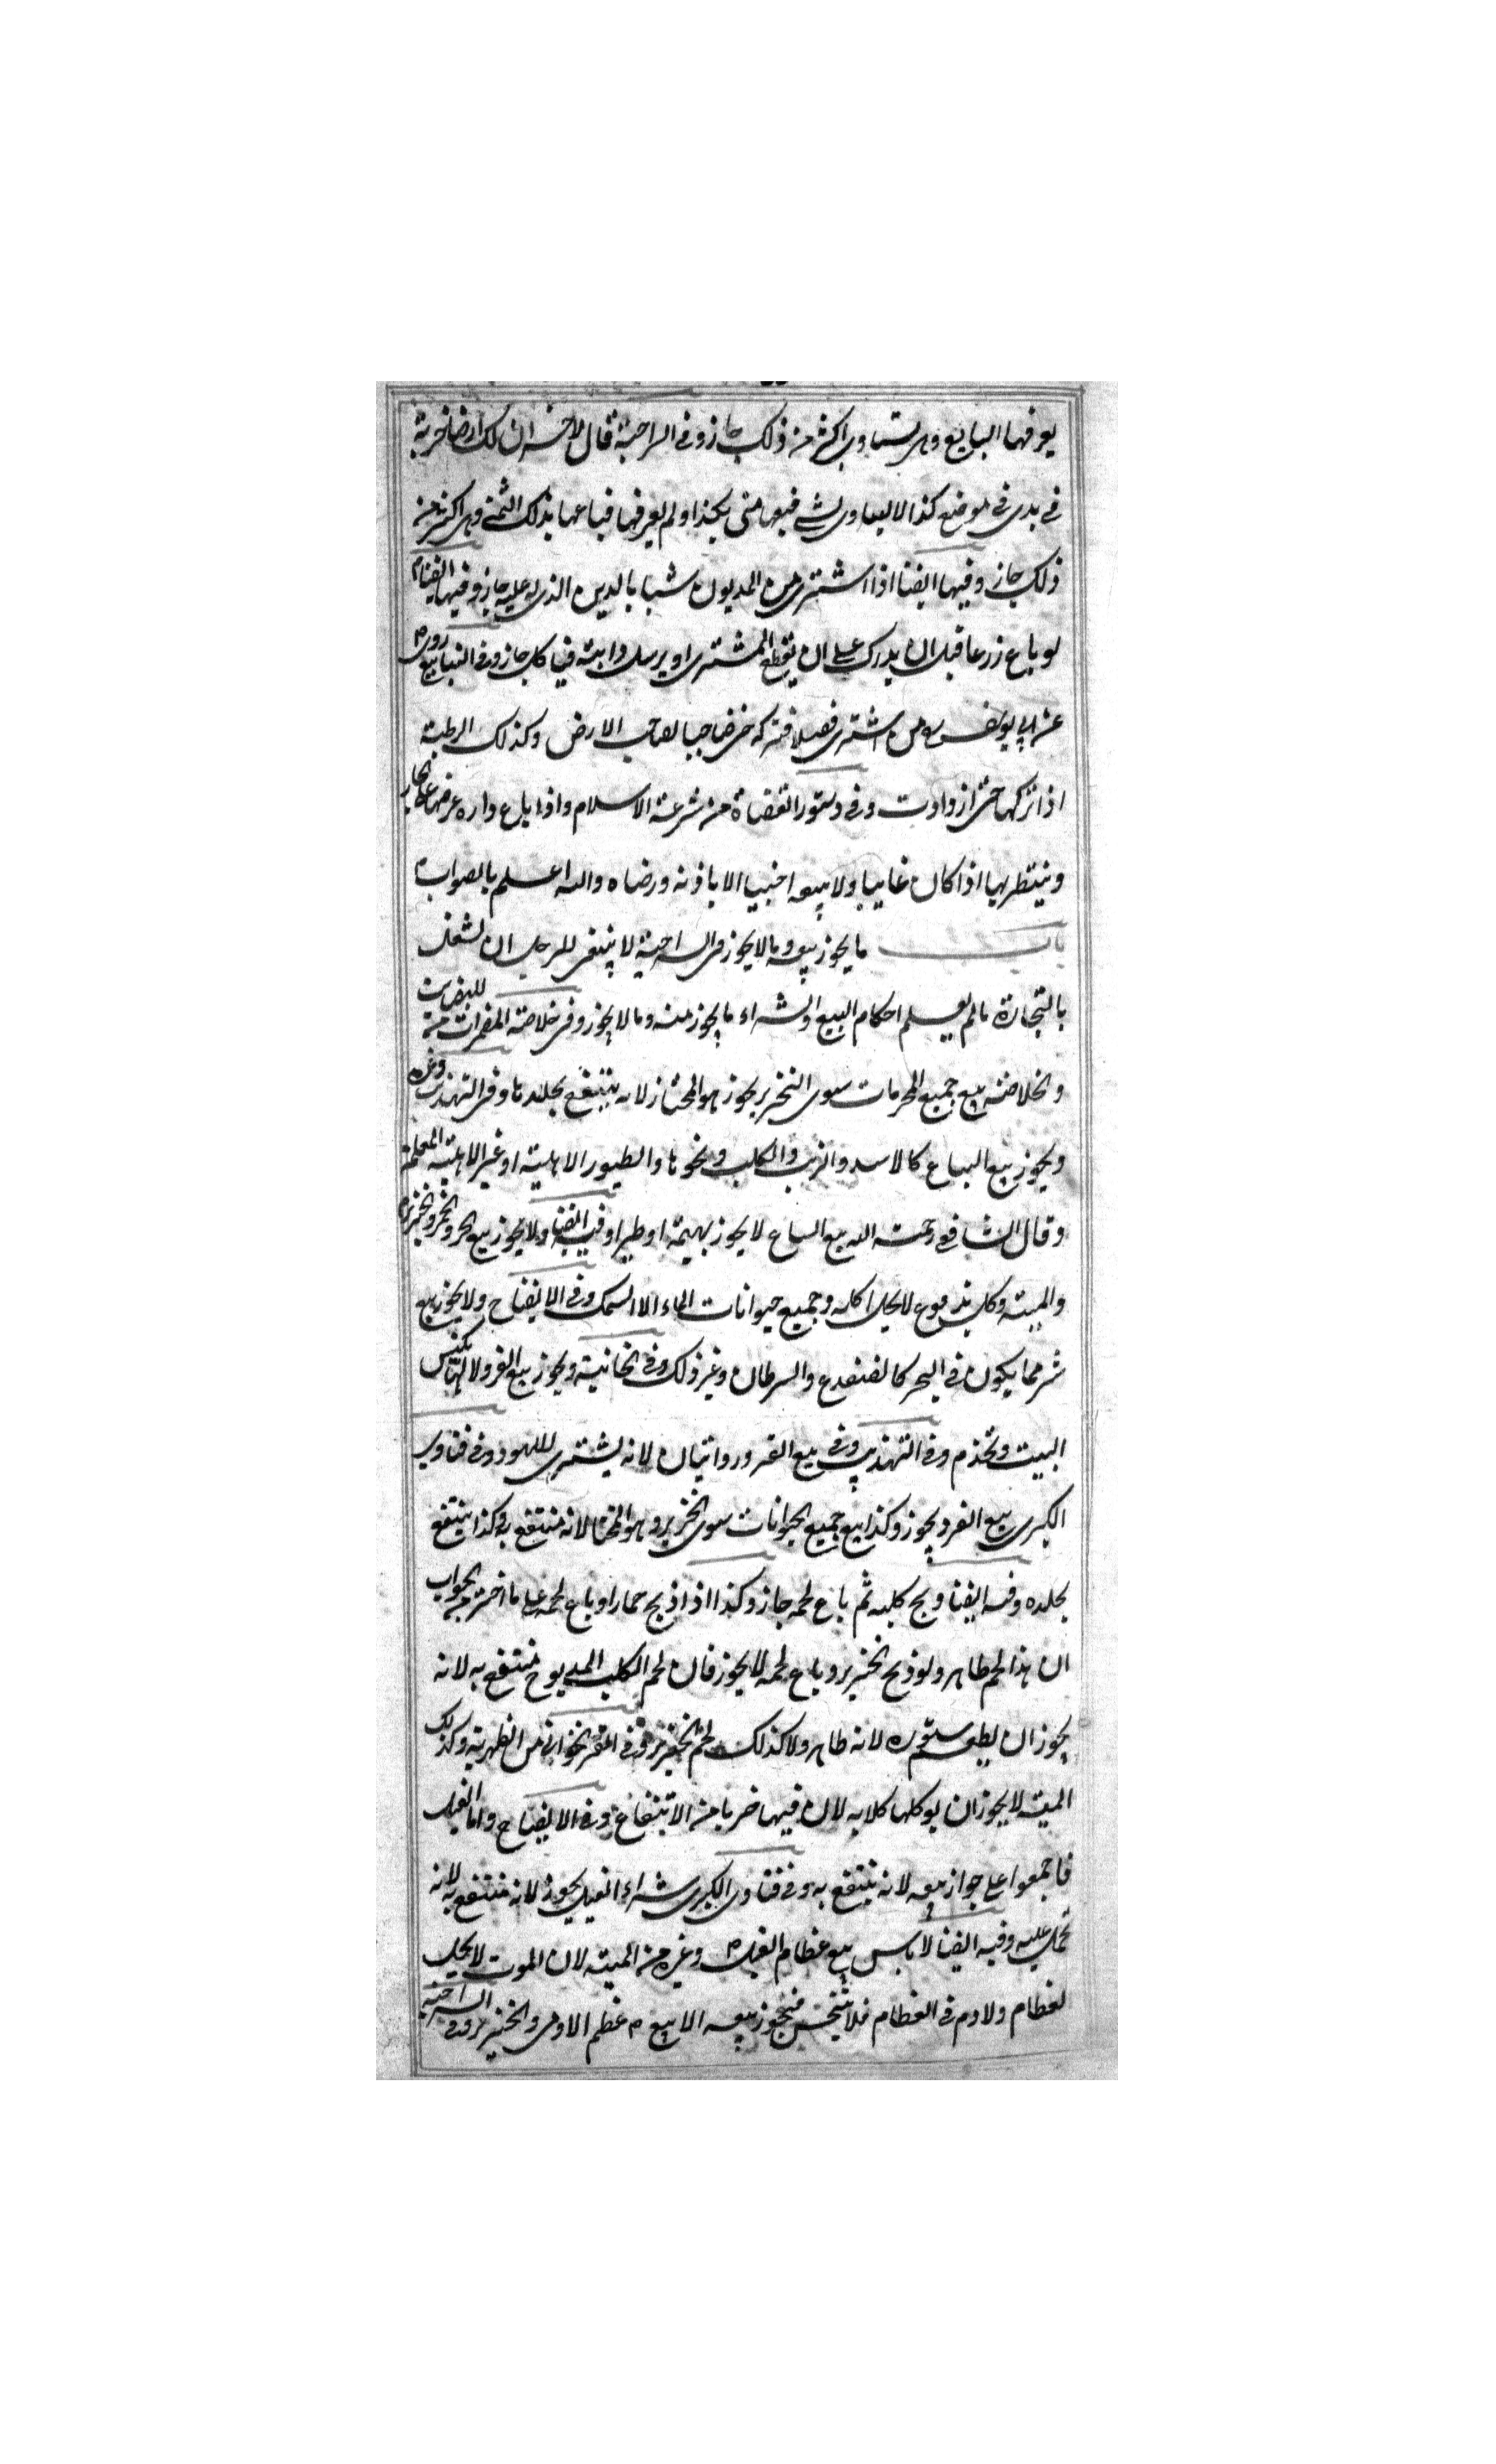 يعرفها البايع وهى تساوى اكثر من ذلك جاز وفى السراجية قال لاخر ان لك ارضا خربة
فى يدى فى موضع كذا لا يساوى لشئ فبعها منى بكذا ولم يعرفها فباعها بذلك الثمن وهى اكثر من
ذلك جاز وفيها ايضا اذا اشترى من المديون شيا بالدين الذى له عليه جاز وفيها ايضا
لو باع زرعا قبل ان يدرك على ان يقطع المشترى او يرسل دابته فيها كل جاز وفى الينابيع روى
عن ابى يوسف رح من اشترى فصيلا فتركه حتى صار حبا لصاحب الارض وكذلك الرطبة
اذا تركها حتى ازدادت وفى دستور القضاة من شرعة الاسلام واذا باع داره عرضها على الجار
وينتظر بها اذا كان غايبا ولا يبيعه اجنبيا الا باذنه ورضاه والله اعلم بالصواب
باب ما يجوز بيعه وما لا يجوز فى السراجية لا ينبغى للرجل ان يشغل
بالتجارة مالم يعلم احكام البيع والشراء ما يجوز منه وما لا يجوز وفى خلاصة المضمرات من
والخلاصة بيع جميع المحرمات سوى الخنزير يجوز هو المختار لانه ينتفع بجلدها وفى التهذيب وغيره
ويجوز بيع السباع كالاسد والذئب والكلب ونحوها والطيور الاهلية او غير الاهلية المعلمة
وقال الشافعى رحمة الله بيع السباع لا يجوز بهيمة او طيرا وفيه ايضا ولا يجوز بيع الحر والخمر والخنزير
والميتة وكل مذبوح لا يحل اكله وجميع حيوانات الماء الا السمك وفى الايضاح ولا يجوز بيع
شئ مما يكون فى البحر كالضفدع والسرطان وغير ذلك وفى الخانية ويجوز بيع القرد لانها تكنس
البيت وتخدم وفى التهذيب وفى بيع القرد روايتان لانه يشترى للهو وفى فتاوى
الكبرى بيع القرد يجوز وكذا بيع جميع الحيوانات سوى الخنزير وهو المختار لانه منتفع به وكذا ينتفع
بجلده وفيه ايضا ذبح كلبه ثم باع لحمه جاز وكذا اذا ذبح حمارا وباع لحمه على ما اختر من الجواب
ان هذا لحم طاهر ولو ذبح الخنزير وباع لحمه لا يجوز فان لحم الكلب المذبوح منتفع به لانه
يجوز ان يطعم سنوره لانه طاهر ولا كذلك لحم الخنزير وفى من الظهيرية وكذلك
الميتة لا يجوز ان يوكلها كلابه لان فيها ضربا من الانتفاع وفى الايضاح واما الفيل
فاجمعوا على جواز بيعه لانه ينتفع به وفى فتاوى الكبرى شراء الفيل يجوز لانه منتفع به لانه
تحمل عليه وفيه ايضا لا باس ببيع عظام الفيل وغيره من الميتة لان الموت لا يحل
لعظام ولا دم فى العظام فلا يتنجس فيجوز بيعه الا بيع عظم الادمى والخنزير وفى السراجية